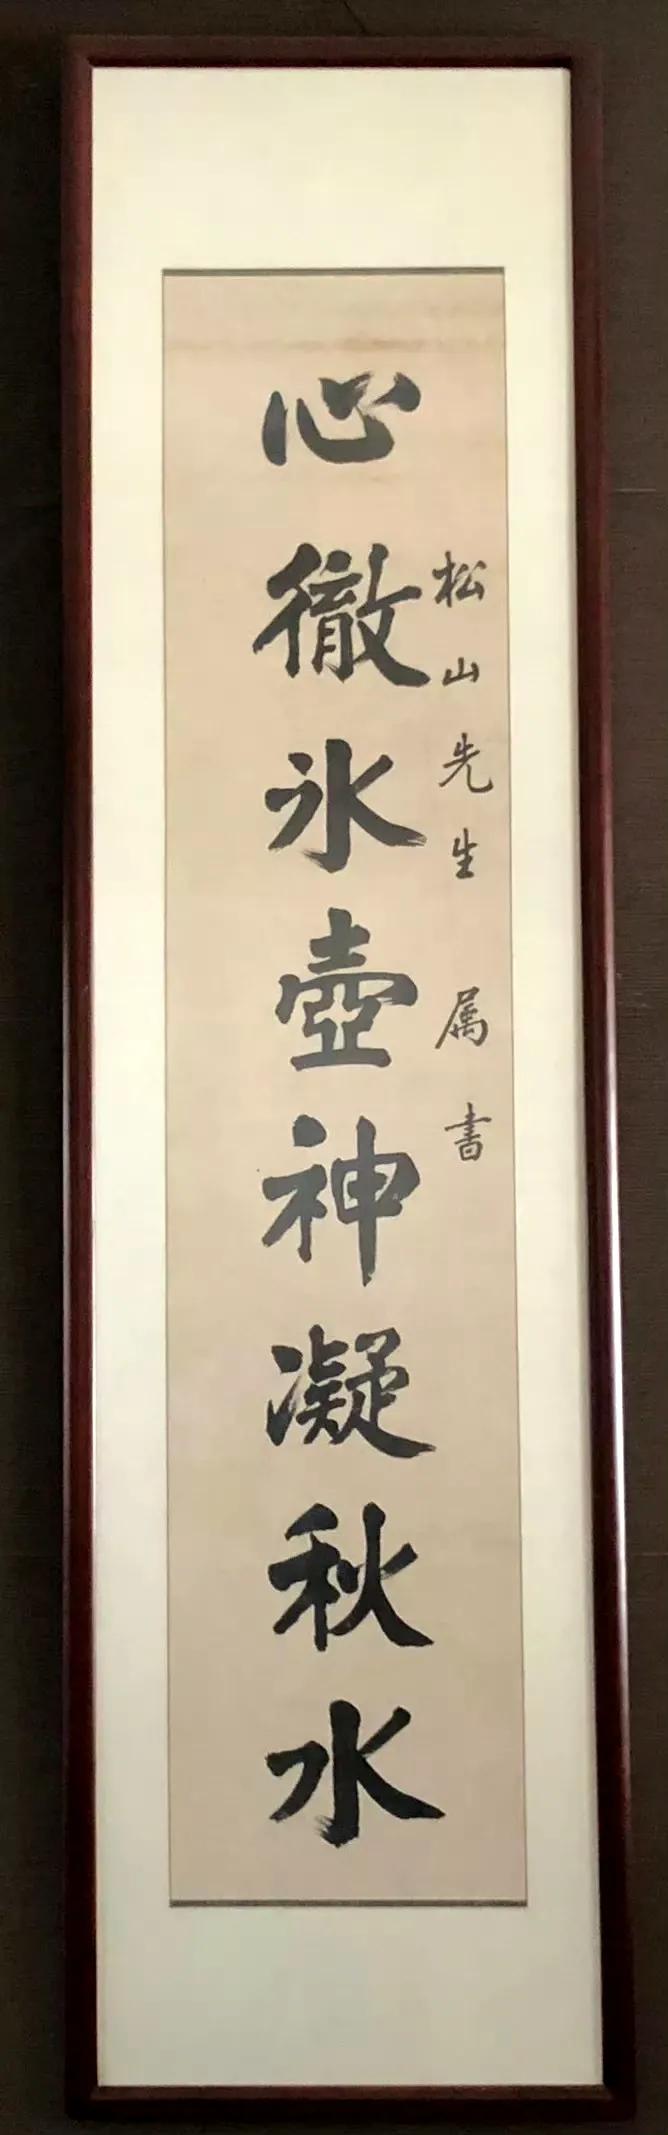 松山先生属書
心徹氷壺神凝秋水